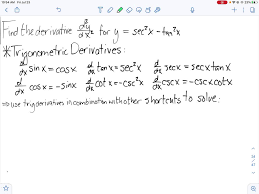 Find the derivative d²y/dx² for y = sec²x - tan²x
*Trigonometric Derivatives:
d/dx sinx = cosx d/dx tanx = sec²x d/dx secx = secxtanx
d/dx cosx = -sinx d/dx cotx = -csc²x d/dx cscx = -cscxcotx
→ use trig derivatives in combination with other shortcuts to solve: